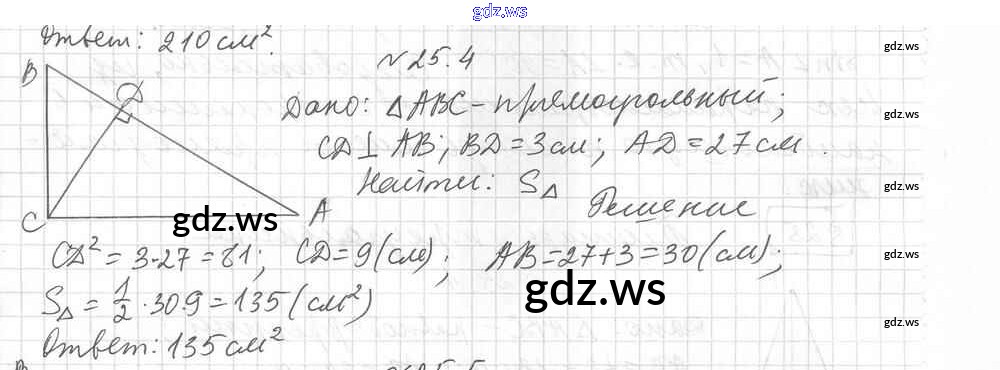 gdz.ws
Ответ: 210 см².
№ 25.4
gdz.ws
B
D
Дано: △ABC - прямоугольный;
gdz.ws
CD ⊥ AB; BD = 3 см; AD = 27 см.
gdz.ws
Найти: S△
gdz.ws
C
A
gdz.ws
Решение
CD² = 3·27 = 81; CD = 9 (см); AB = 27 + 3 = 30 (см);
gdz.ws
gdz.ws
S△ = 1/2 · 30·9 = 135 (см²)
gdz.ws
Ответ: 135 см²
№ 25.5